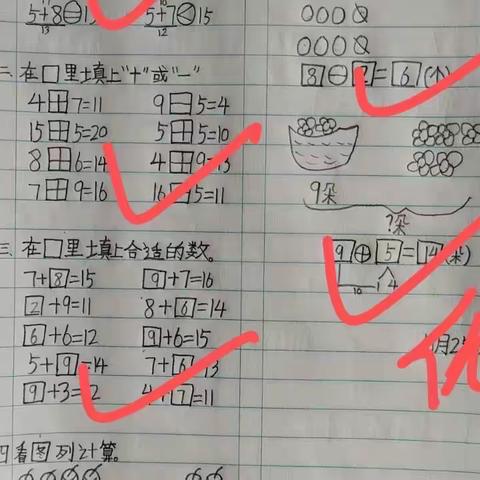 5+8⊖13 5+7⊘15
13 12
二、在□里填上"+"或"-"
4⊞7=11 9⊟5=4
15⊞5=20 5⊞5=10
8⊞6=14 4⊞9=13
7⊞9=16 16⊟5=11
三、在□里填上合适的数。
7+8=15 9+7=16
2+9=11 8+6=14
6+6=12 9+6=15
5+9=14 7+6=13
9+3=12 4+7=11
四看图列计算。
8⊖2=6(个)
9朵
?朵
9⊕5=14(朵)
1 4
10
优